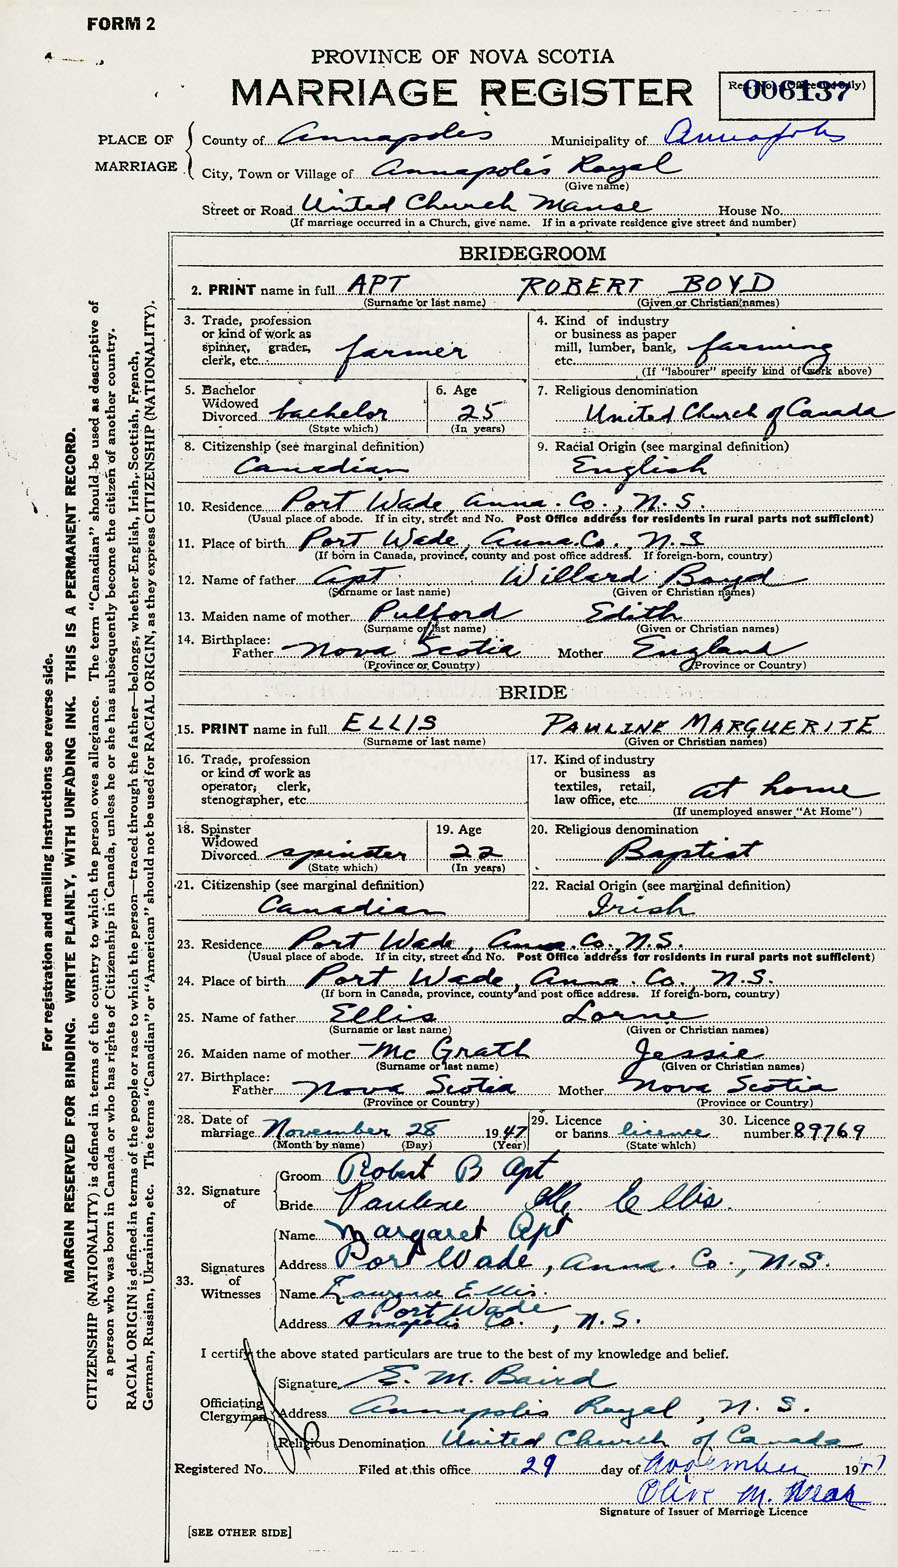 FORM 2
PROVINCE OF NOVA SCOTIA
MARRIAGE REGISTER
Reg. No. (Office use only)
006137
PLACE OF MARRIAGE
County of Annapolis Municipality of Annapolis
City, Town or Village of Annapolis Royal
(Give name)
Street or Road United Church Manse House No.
(If marriage occurred in a Church, give name. If in a private residence give street and number)
BRIDEGROOM
2. PRINT name in full APT ROBERT BOYD
(Surname or last name) (Given or Christian names)
3. Trade, profession or kind of work as spinner, grader, clerk, etc. farmer
4. Kind of industry or business as paper mill, lumber, bank, etc. farming
(If "labourer" specify kind of work above)
5. Bachelor Widowed Divorced bachelor
(State which)
6. Age 25
(In years)
7. Religious denomination
United Church of Canada
8. Citizenship (see marginal definition)
Canadian
9. Racial Origin (see marginal definition)
English
10. Residence Port Wade, Anna. Co., N.S.
(Usual place of abode. If in city, street and No. Post Office address for residents in rural parts not sufficient)
11. Place of birth Port Wade, Anna. Co., N.S
(If born in Canada, province, county and post office address. If foreign-born, country)
12. Name of father Apt Willard Boyd
(Surname or last name) (Given or Christian names)
13. Maiden name of mother Pulford Edith
(Surname or last name) (Given or Christian names)
14. Birthplace:
Father Nova Scotia Mother England
(Province or Country) (Province or Country)
BRIDE
15. PRINT name in full ELLIS PAULINE MARGUERITE
(Surname or last name) (Given or Christian names)
16. Trade, profession or kind of work as operator, clerk, stenographer, etc.
17. Kind of industry or business as textiles, retail, law office, etc. at home
(If unemployed answer "At Home")
18. Spinster Widowed Divorced spinster
(State which)
19. Age 22
(In years)
20. Religious denomination
Baptist
21. Citizenship (see marginal definition)
Canadian
22. Racial Origin (see marginal definition)
Irish
23. Residence Port Wade, Anna. Co., N.S.
(Usual place of abode. If in city, street and No. Post Office address for residents in rural parts not sufficient)
24. Place of birth Port Wade, Anna Co. N.S.
(If born in Canada, province, county and post office address. If foreign-born, country)
25. Name of father Ellis Lorne
(Surname or last name) (Given or Christian names)
26. Maiden name of mother Mc Grath Jessie
(Surname or last name) (Given or Christian names)
27. Birthplace:
Father Nova Scotia Mother Nova Scotia
(Province or Country) (Province or Country)
28. Date of marriage November 28 1947
(Month by name) (Day) (Year)
29. Licence or banns licence
(State which)
30. Licence number 89769
32. Signature of
Groom Robert B Apt
Bride Paulene M. Ellis
33. Signatures of Witnesses
Name Margaret Apt
Address Port Wade, Anna. Co., N.S.
Name Laurence Ellis.
Port Wade
Address Annapolis Co., N.S.
I certify the above stated particulars are true to the best of my knowledge and belief.
Officiating Clergyman
Signature E. M. Baird
Address Annapolis Royal, N.S.
Religious Denomination United Church of Canada
Registered No. Filed at this office 29 day of November 1947
Olive M.
Signature of Issuer of Marriage Licence
[SEE OTHER SIDE]
For registration and mailing instructions see reverse side.
MARGIN RESERVED FOR BINDING. WRITE PLAINLY, WITH UNFADING INK. THIS IS A PERMANENT RECORD.
CITIZENSHIP (NATIONALITY) is defined in terms of the country to which the person owes allegiance. The term "Canadian" should be used as descriptive of
a person who was born in Canada or who has rights of Citizenship in Canada, unless he or she has subsequently become the citizen of another country.
RACIAL ORIGIN is defined in terms of the people or race to which the person—traced through the father—belongs, whether English, Irish, Scottish, French,
German, Russian, Ukrainian, etc. The terms "Canadian" or "American" should not be used for RACIAL ORIGIN, as they express CITIZENSHIP (NATIONALITY).